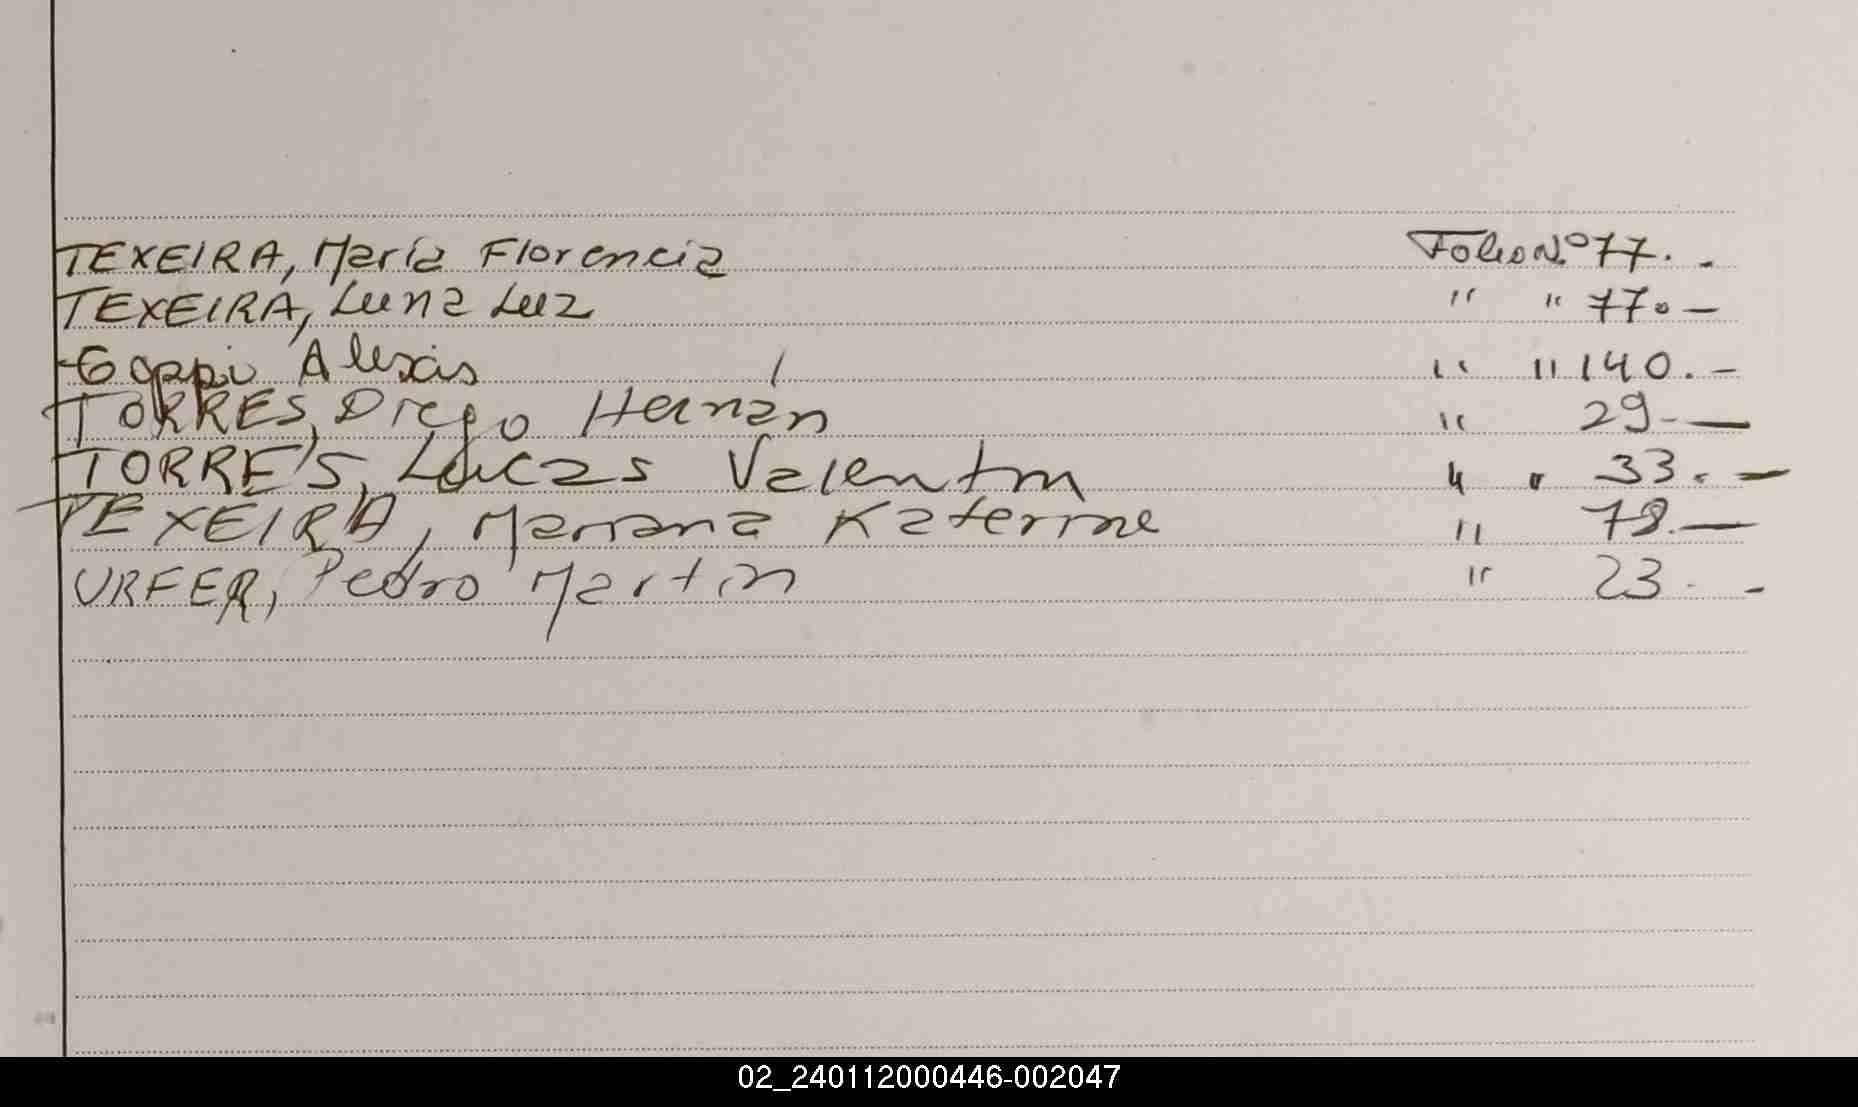 TEXEIRA, María Florencia Folio Nº 77. -
TEXEIRA, Luna Luz " " 77. -
Alexis " " 140. -
TORRES, Diego Hernán " 29. -
TORRES, Lucas Valentín " " 33. -
TEXEIRA, Mariana Katerine " 78. -
URFER, Pedro Martín " 23. -
02_240112000446-002047